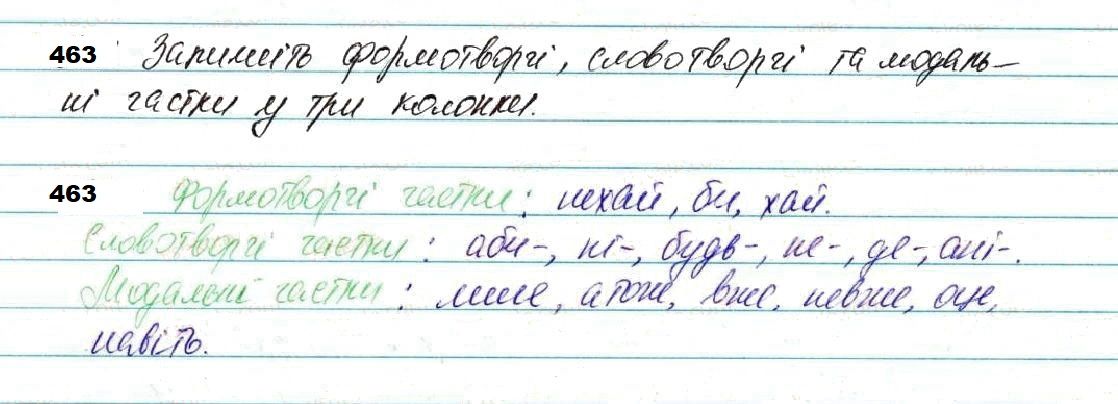 463 Запишіть формотворчі, словотворчі та модаль-
ні частки у три колонки.
463 Формотворчі частки: нехай, би, хай.
Словотворчі частки: аби-, ні-, будь-, не-, де-, ані-.
Модальні частки: лише, атож, вже, невже, оце,
навіть.